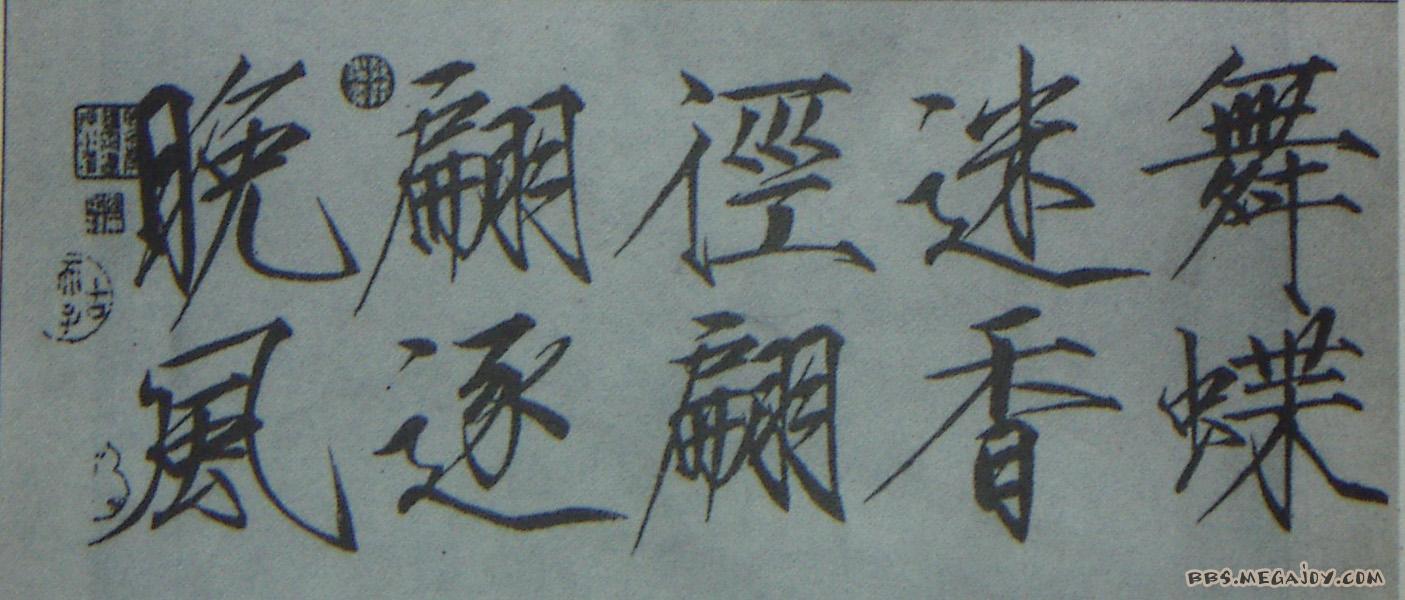 舞蝶
迷香
徑翩
翩逐
晚風
BBS.MEGAJOY.COM